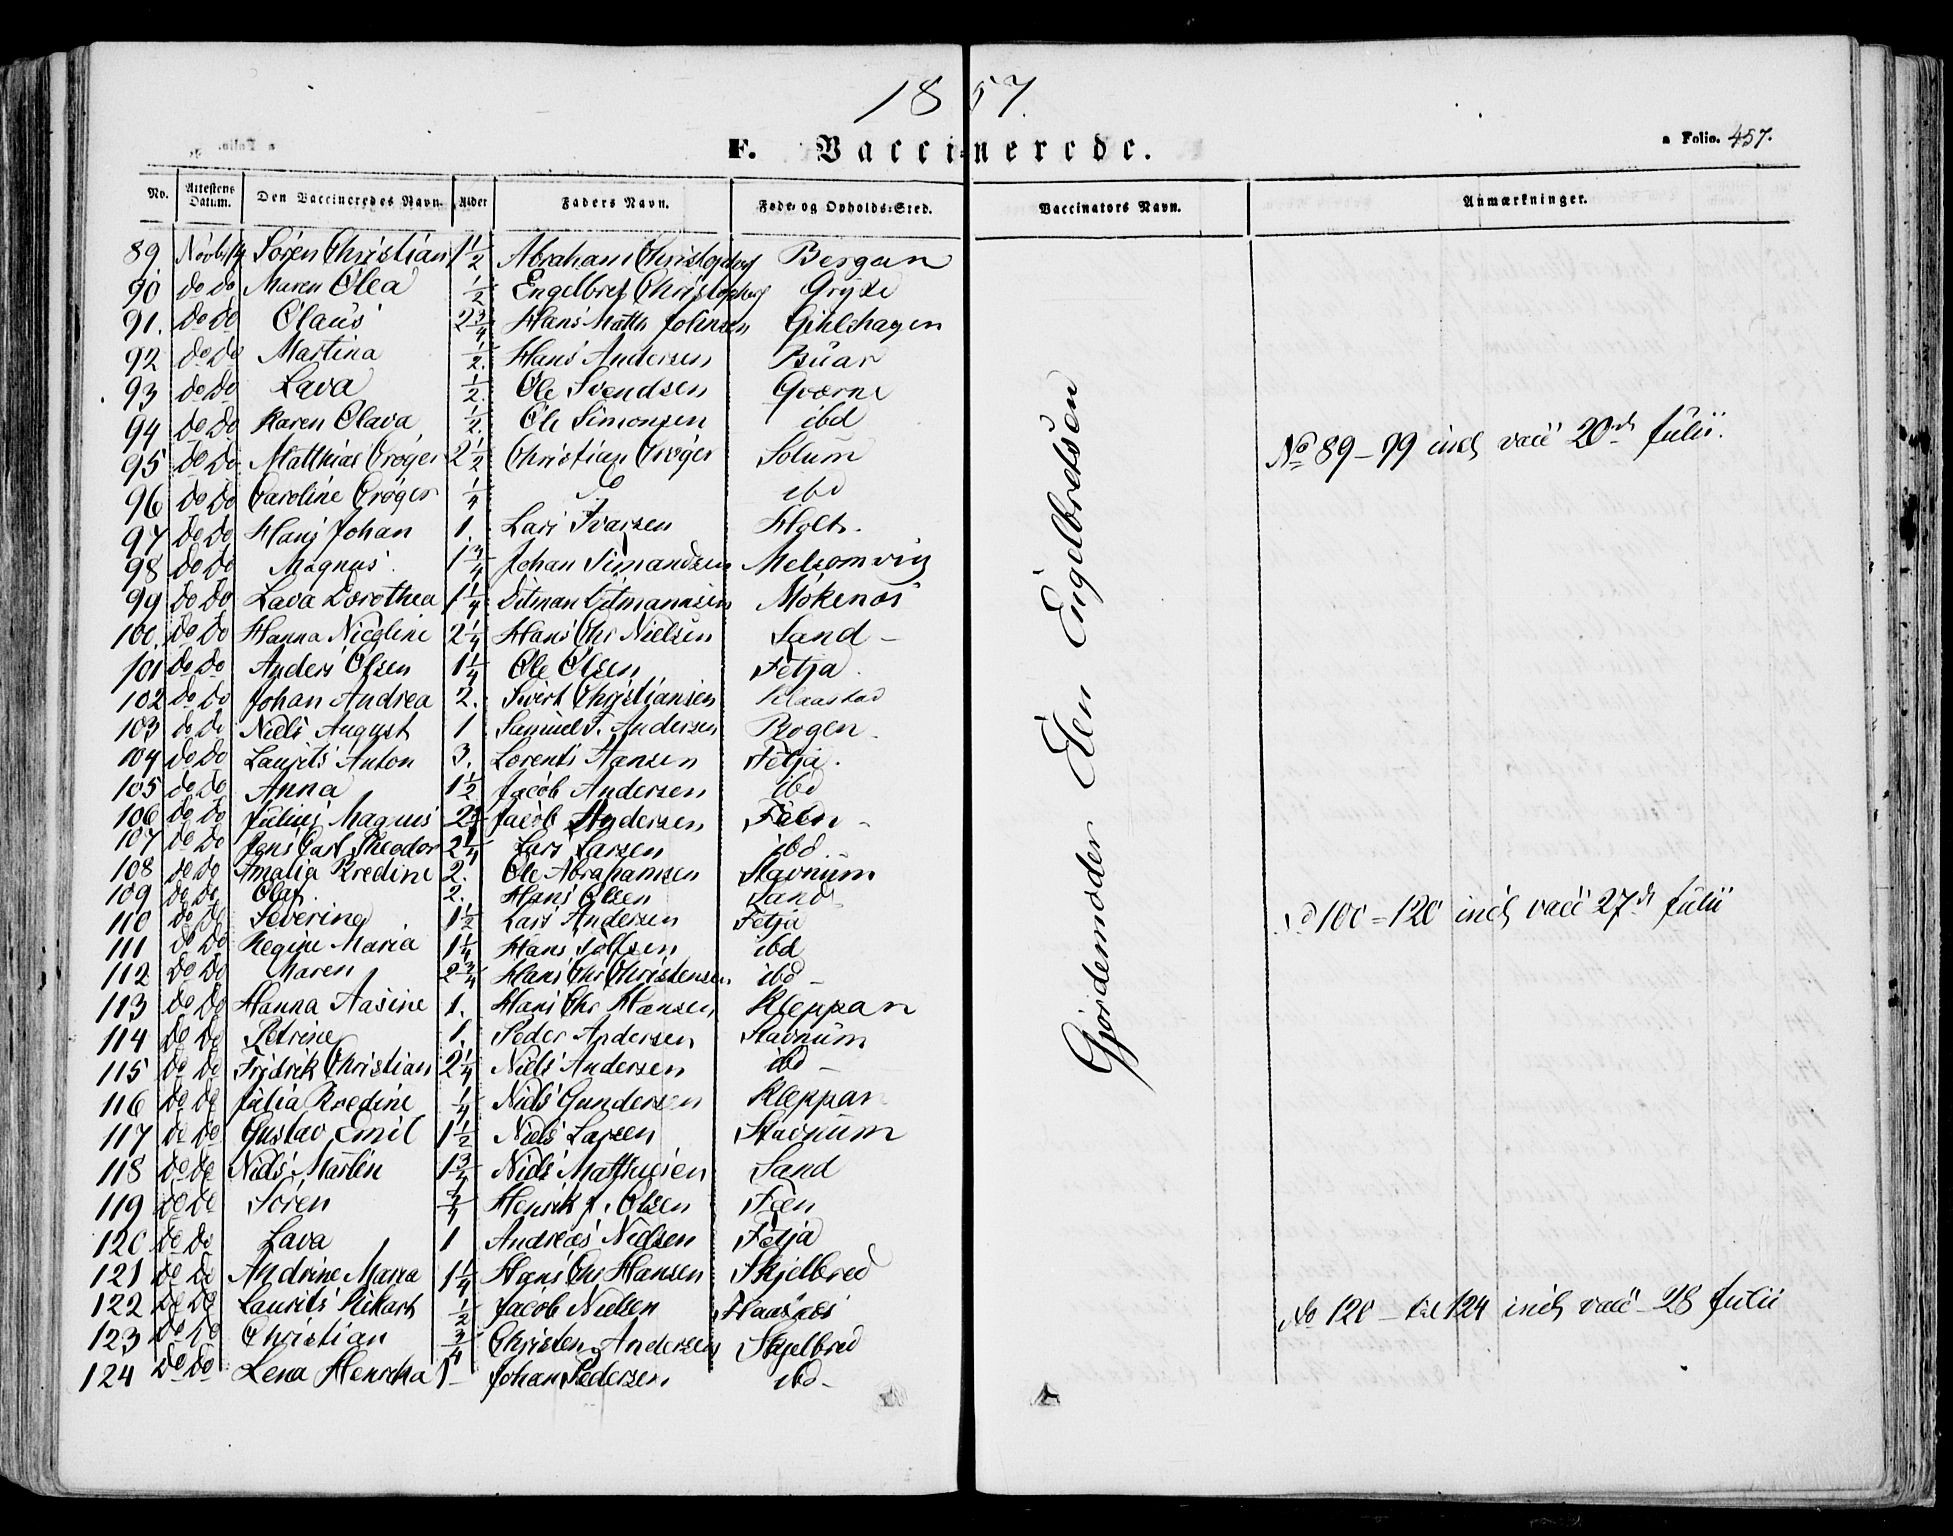 1857.
F. Vaccinerede.
a Folio. 457.
No. Attestens Datum. Den Vaccineredes Navn. Alder Faders Navn. Føde- og Opholds-Sted. Vaccinators Navn. Anmærkninger.
89 Novbr 14 Søren Christian 1 1/2 Abraham Bergan
90 do do Maren Olea 1/2 Engelbret Gryte
91. do do Olaus 2 3/4 Hans Matth Johnsen
92 do do Martina 1/2. Hans Andersen Buar
93 do do Lava 1/2. Ole Svendsen Qværne
94 do do Karen Olava 1/2. Ole Simonsen ibd
95 do do Matthias Crøger 2 1/2 Christian Crøger Solum
96 do do Caroline Crøger 1/4 ibd
97 do do Hans Johan 1. Lars Ivarsen Holt.
98 do do Magnus. 1 3/4 Johan Simandsen Melsomvig
99 do do Lava Dorothea 1 1/4 Ditman Ditmannsen Mökenäs
100. do do Hanna Nicoline 2 1/4 Hans Chr Nielsen Sand -
101 do do Anders Olsen 1 1/4 Ole Olsen Fetja.
102 do do Johan Andrea 2. Sivert Christiansen Klaastad
103 do do Niels August 1 Samuel F. Andersen Bogen.
104 do do Laurits Anton 3. Lorents Hansen Fetja.
105 do do Anna 1 1/2 Jacob Andersen ibd
106 do do Julius Magnus Jacob Andersen Feen -
107 do do Jens Carl Theodor 2 1/4 Lars Larsen ibd
108 do do Amalia Bredine 2. Ole Abrahamsen Stavnum
109 do do Olaf. 2. Hans Olsen Sand
110 do do Severine 1 1/2 Lars Andersen Fetja
111 do do Regine Maria 1 1/4 Hans Tolfsen ibd
112 do do Maren 2 3/4 Hans Chr Christensen ibd -
113 do do Hanna Aasine 1. Hans Chr Hansen Kleppan
114 do do Petrine 1. Peder Andersen Stavnum
115 do do Fridrik Christian 2 1/4 Niels Andersen ibd -
116 do do Julia Bredine 1/4 Niels Gundersen Kleppan
117 do do Gustav Emil 1 1/2 Niels Larsen Stavnum
118 do do Niels Martin 1 3/4 Niels Mathiesen Sand
119 do do Søren 3/4 Henrik J. Olsen Feen
120 do do Lava 1 Andreas Nielsen Fetja
121 do do Andrine Maria 1 1/4 Hans Chr Hansen Skjelbred
122 do do Laurits Rikart 1/2 Jacob Nielsen Haasnæs
123 do do Christian 3/4 Christen Andersen Skjelbred
124 do do Lena Henrikka 1 - Johan Pedersen ibd -
Gjordemoder Elen Engelbretsen
No 89 - 99 incl vacc 20de Julii.
No 100 - 120 incl vacc 27de Julii
No 120 - til 124 incl vacc - 28 Julii